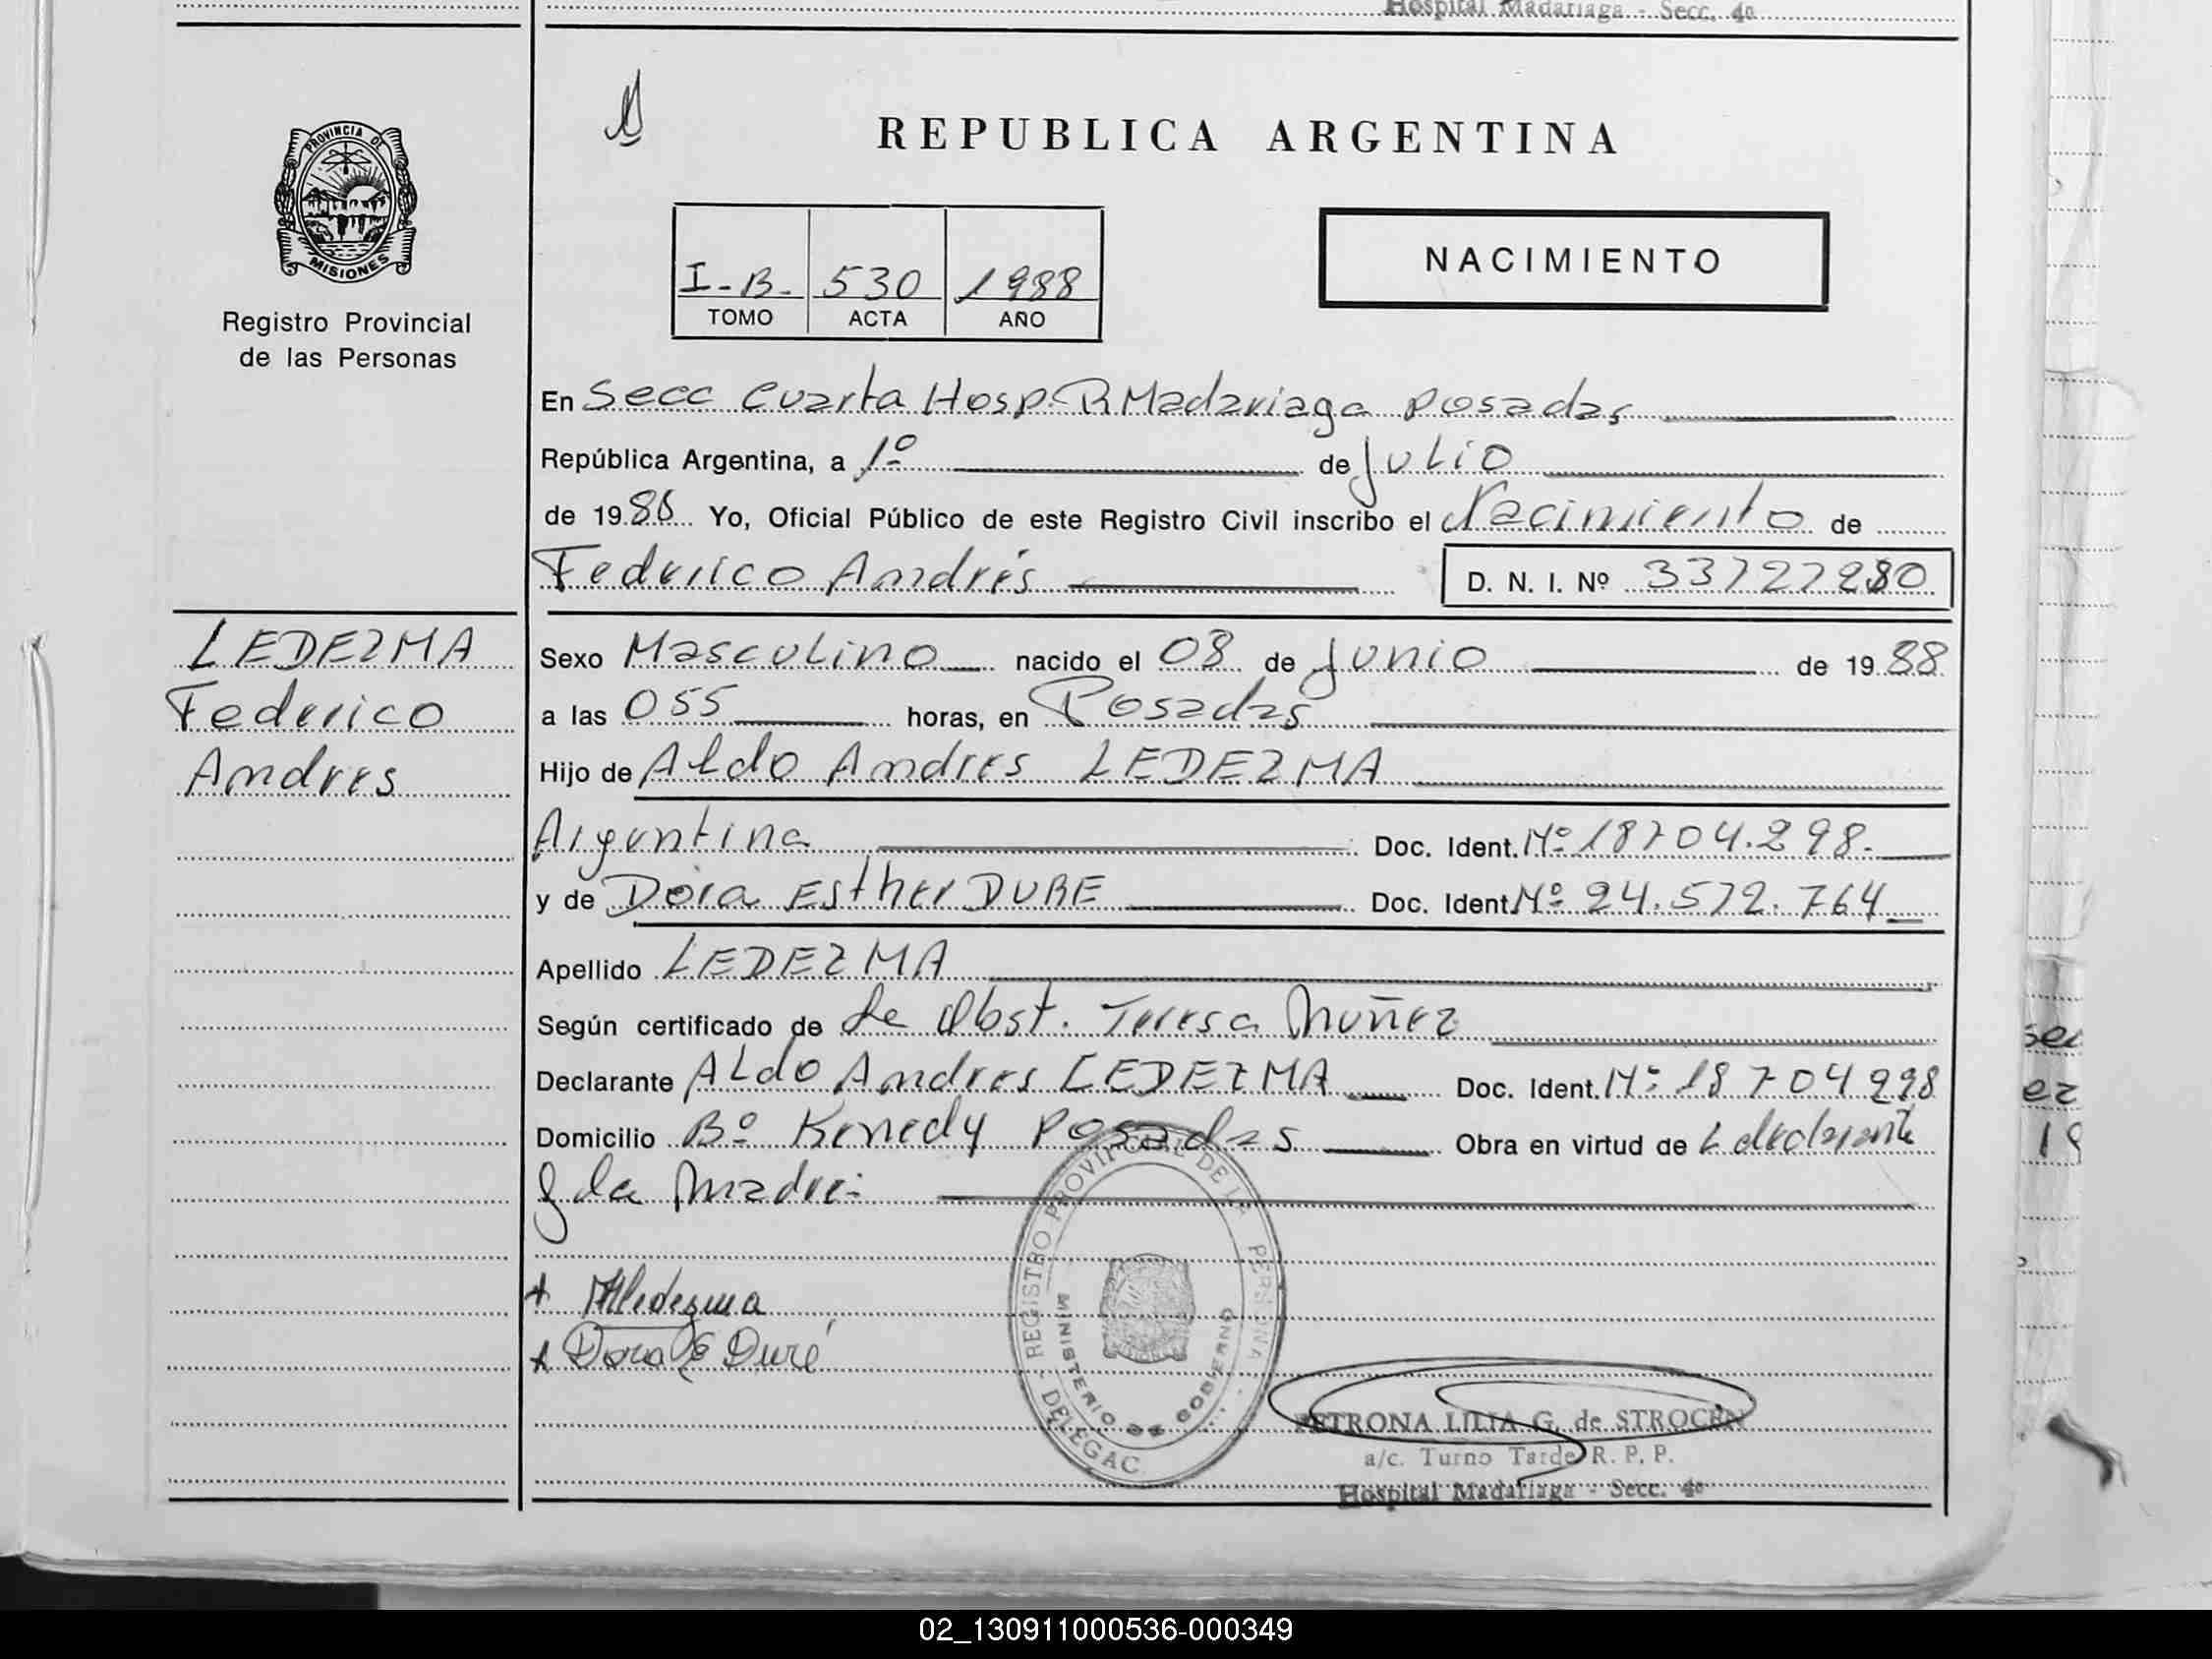 Hospital Madariaga - Secc. 4a
PROVINCIA DE
MISIONES
Registro Provincial
de las Personas
REPUBLICA ARGENTINA
I-B- 530 1988
TOMO ACTA AÑO
NACIMIENTO
En Secc Cuarta Hosp. R Madariaga Posadas
República Argentina, a 1º de Julio
de 1988 Yo, Oficial Público de este Registro Civil inscribo el Nacimiento de
Federico Andrés D. N. I. Nº 33727280
LEDEZMA
Federico
Andres
Sexo Masculino nacido el 08 de Junio de 1988
a las 055 horas, en Posadas
Hijo de Aldo Andres LEDEZMA
Argentina Doc. Ident. Nº 18704.298.
y de Dora Esther DURE Doc. Ident. Nº 24.572.764
Apellido LEDEZMA
Según certificado de de Obst. Teresa Nuñez
Declarante Aldo Andres LEDEZMA Doc. Ident. Nº 18704298
Domicilio Bº Kenedy Posadas Obra en virtud de L declarante
y la Madre:
Aledezma
Dora E Duré
REGISTRO PROVINCIAL DE LA PERSONA
MINISTERIO DE GOBIERNO
DELEGAC
PETRONA LILIA G. de STROCEN
a/c. Turno Tarde R. P. P.
Hospital Madariaga - Secc. 4a
02_130911000536-000349